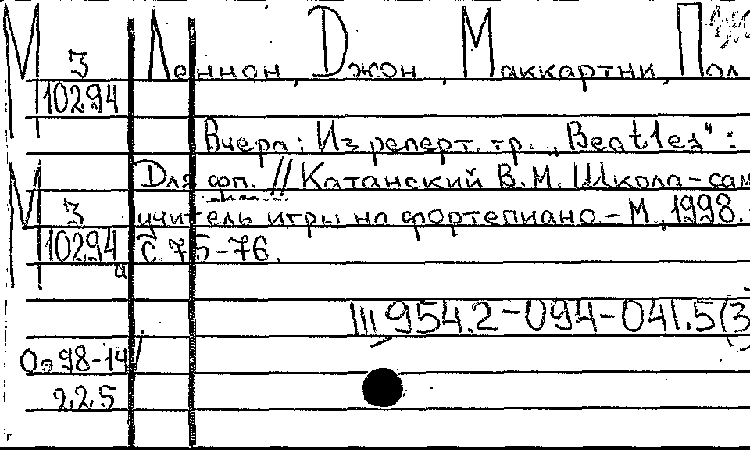 М З 10294
Леннон, Джон, Маккартни, Пол
Вчера: Из реперт. гр. „Beatles“:
Для фп. // Катанский В.М. Школа-сам
М З 10294а
учитель игры на фортепиано - М., 1998. -
С 75-76.
Ш 954.2-094-041.5(3
98-14/
225